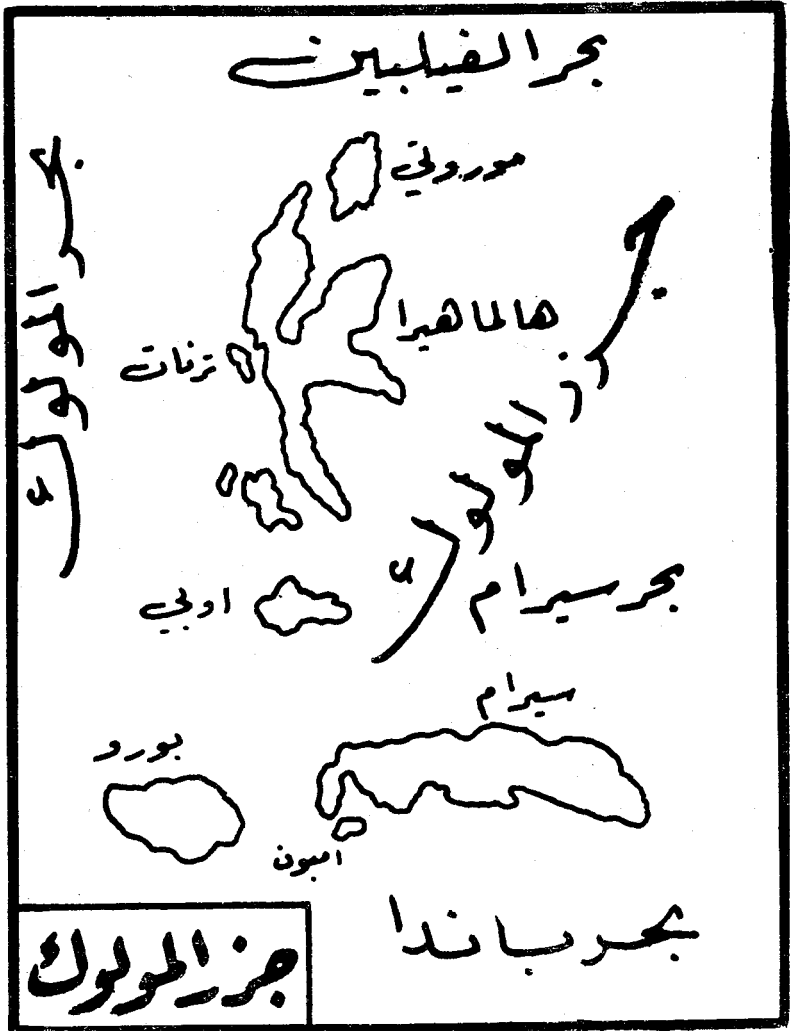 بحر الفيلبين
موروتي
بحر المولوك
هالماهيرا
جزر المولوك
ترنات
بحر سيرام
اوبي
سيرام
بورو
امبون
بحر باندا
جزر المولوك